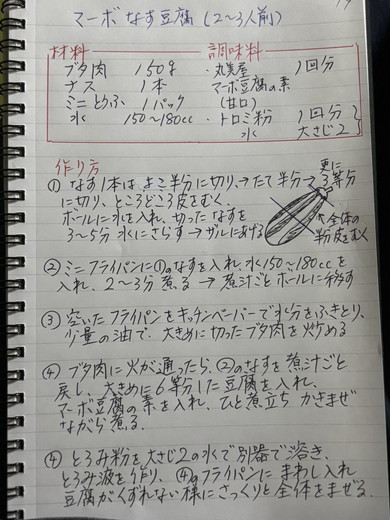 マーボなす豆腐(2〜3人前)
材料
調味料
ブタ肉 150g
・丸美屋 1回分
ナス 1本
マーボ豆腐の素
ミニとうふ 1パック
(甘口)
水 150〜180cc
・トロミ粉 1回分
水 大さじ2
作り方
① なす1本は、よこ半分に切り、→たて半分→更に3等分
に切り、ところどころ皮をむく。
ボールに水を入れ、切ったなすを
3〜5分 水にさらす→ザルにあげる
全体の
皮をむく
② ミニフライパンに①のなすを入れ、水150〜180ccを
入れ、2〜3分 煮る → 煮汁ごとボールに移す
③ 空いたフライパンをキッチンペーパーで水分をふきとり、
少量の油で、大きめに切ったブタ肉を炒める
④ ブタ肉に火が通ったら、②のなすを煮汁ごと
戻し、大きめに6等分した豆腐を入れ、
マーボ豆腐の素を入れ、ひと煮立ち かきまぜ
ながら煮る.
④ とろみ粉を大さじ2の水で別器で溶き、
とろみ液を作り、④のフライパンに まわし入れ
豆腐がくずれない様にさっくりと全体をまぜる.